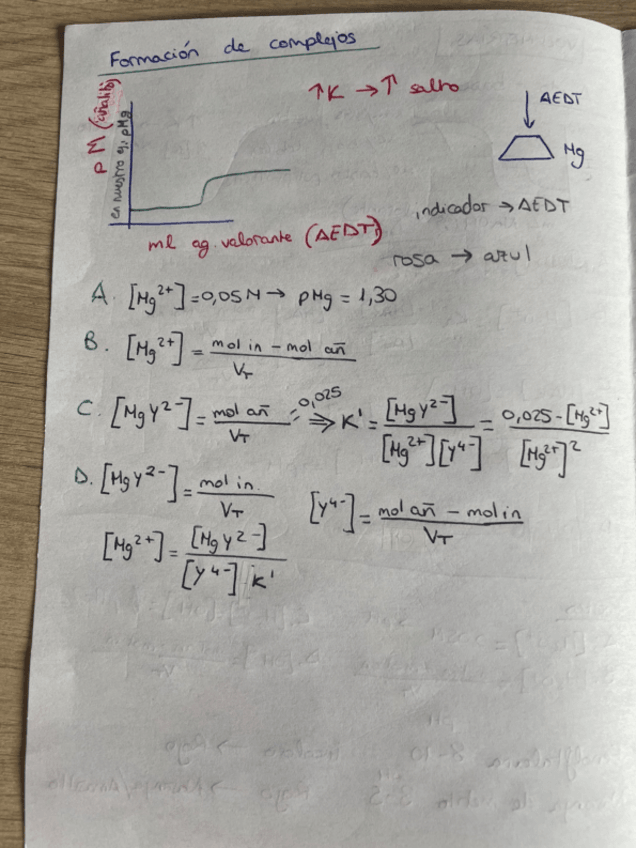 Formación de complejos
↑K → ↑ salto
pM (analito)
en nuestro ej. pMg
AEDT
Mg
indicador → AEDT
ml ag. valorante (AEDT)
rosa → azul
A. [Mg²⁺] = 0,05M → pMg = 1,30
B. [Mg²⁺] = mol in - mol añ / VT
C. [MgY²⁻] = mol añ / VT = 0,025 ⇒ K' = [MgY²⁻] / [Mg²⁺][Y⁴⁻] = 0,025 - [Mg²⁺] / [Mg²⁺]²
D. [MgY²⁻] = mol in. / VT [Y⁴⁻] = mol añ - mol in / VT
[Mg²⁺] = [MgY²⁻] / [Y⁴⁻] K'